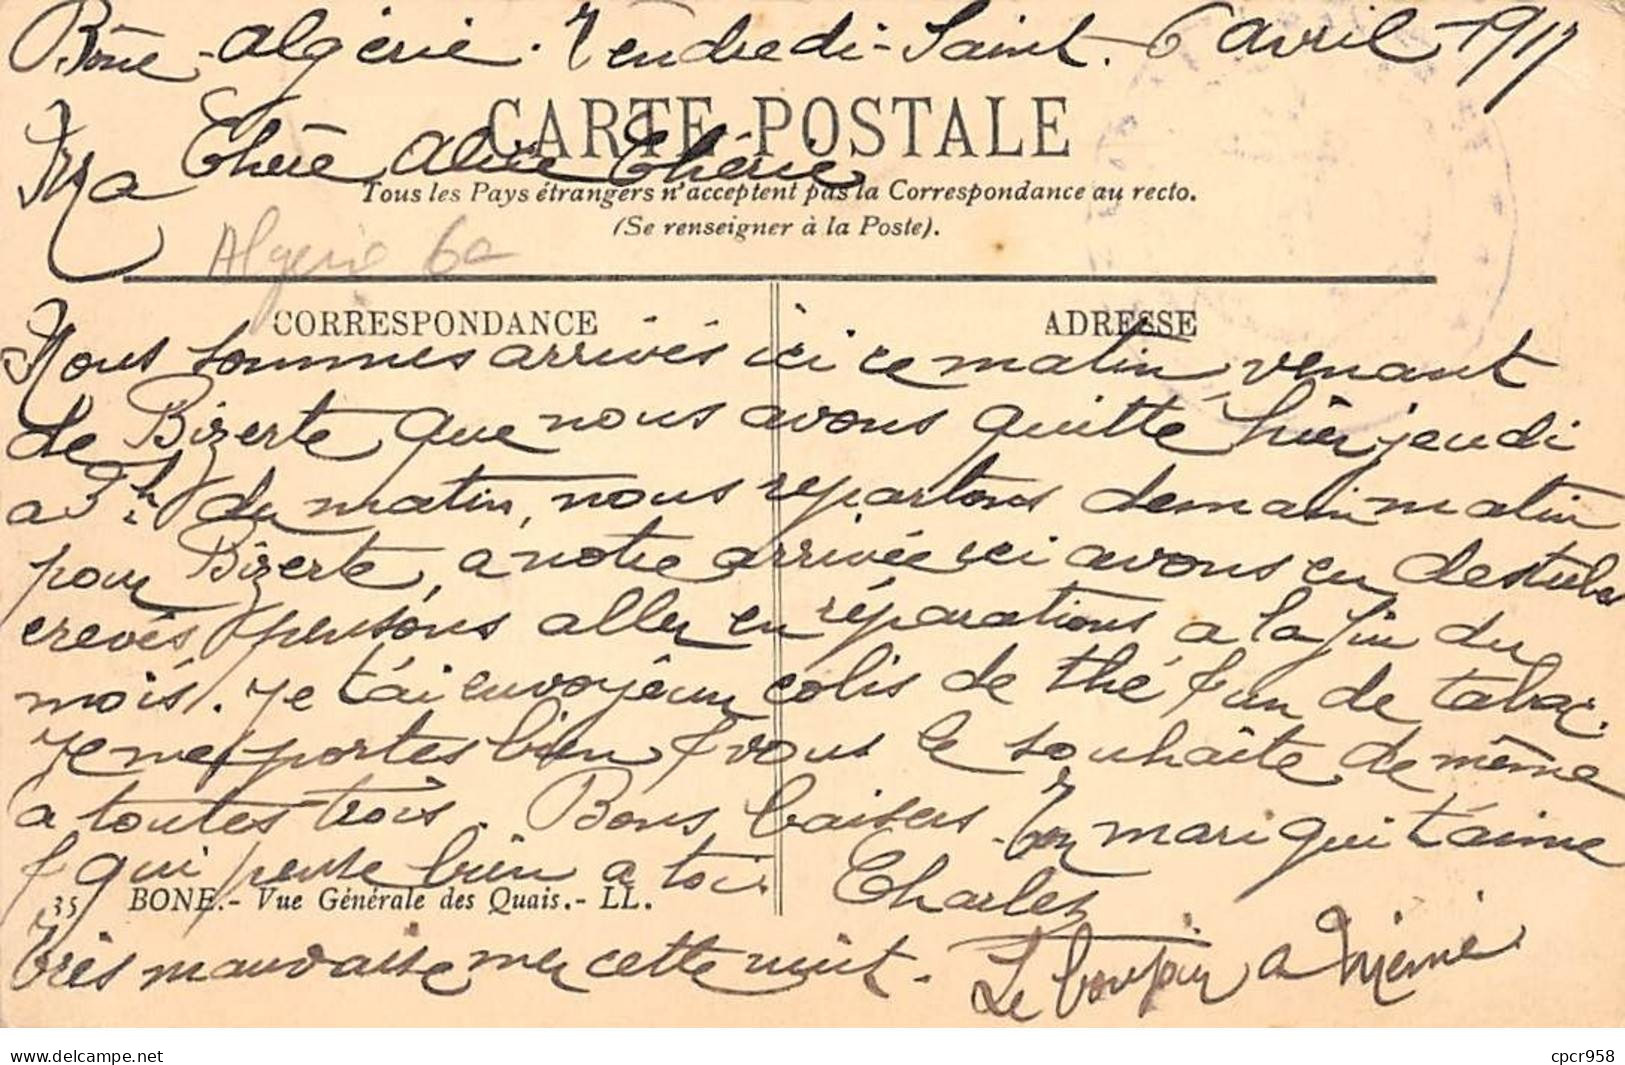 Bône - Algérie. Vendredi-Saint. 6 avril 1917
CARTE POSTALE
Ma Chère Alice Chérie
Tous les Pays étrangers n'acceptent pas la Correspondance au recto.
(Se renseigner à la Poste).
Algérie 6e
CORRESPONDANCE
ADRESSE
Nous sommes arrivés ici ce matin venant
de Bizerte que nous avons quitté hier jeudi
a 9h du matin, nous repartons demain matin
pour Bizerte, a notre arrivée ici avons eu des tubes
crevés & pensons aller en réparations a la fin du
mois. Je t'ai envoyé un colis de thé & un de tabac.
Je me portes bien & vous le souhaite de même
a toutes trois. Bons baisers. Ton mari qui t'aime
& qui pense bien a toi. Charles
35 BONE.- Vue Générale des Quais.- LL.
Très mauvaise mer cette nuit. Le bonjour a Mémé
cpcr958
www.delcampe.net